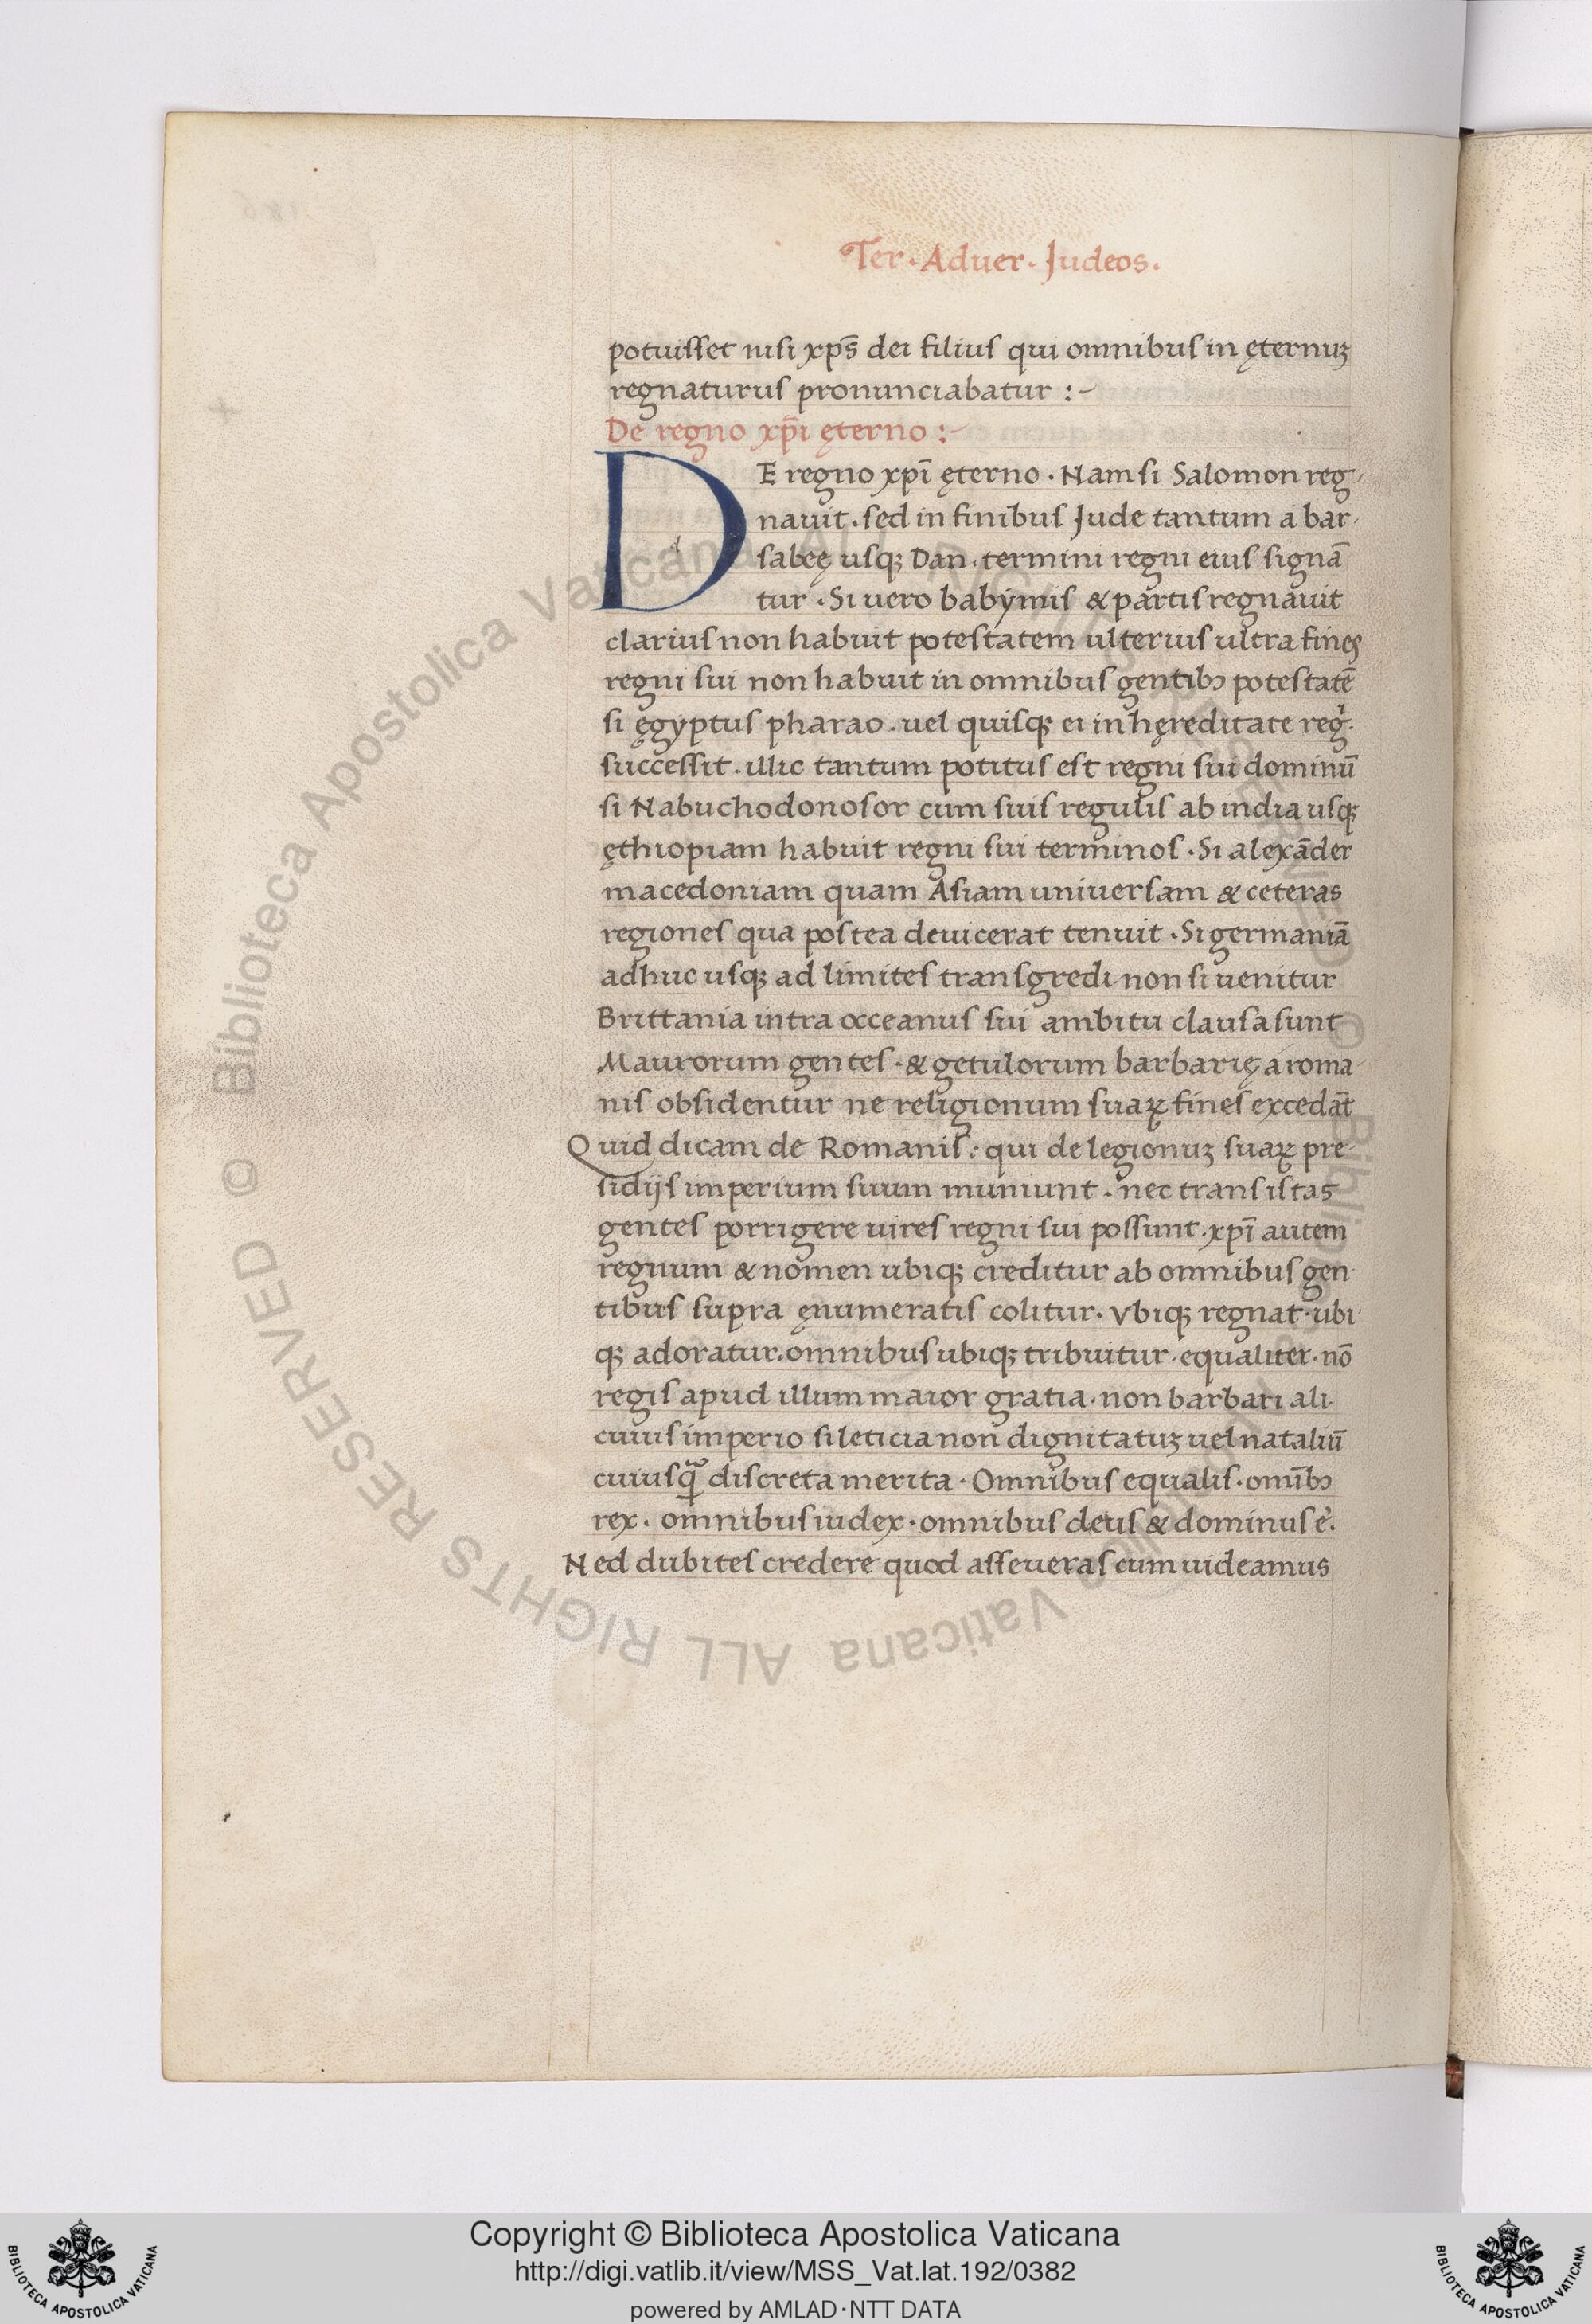 Ter · Aduer · Judeos .
potuisset nisi xp̄s dei filius qui omnibus in ęternuꝫ
regnaturus pronunciabatur :~
De regno xp̄i ęterno :~
DE regno xpī ęterno · Nam si Salomon reg-
nauit . sed in finibus Jude tantum a bar-
sabeę usqꝫ Dan . termini regni eius signā
tur . Si uero babymis & partis regnauit
clarius non habuit potestatem ulterius ultra fines
regni sui non habuit in omnibus gentibꝰ potestatē
si ęgyptus pharao . uel quisqꝫ ei in hęreditate reg̍.
successit . illic tantum potitus est regni sui dominū
si Nabuchodonosor cum suis regulis ab india usqꝫ
ęthiopiam habuit regni sui terminos . Si alexāder
macedoniam quam Asiam uniuersam & ceteras
regiones qua postea deuicerat tenuit . Si germaniā
adhuc usqꝫ ad limites transgredi non si uenitur
Brittania intra occeanus sui ambitu clausa sunt
Maurorum gentes . & getulorum barbarię a roma-
nis obsidentur ne religionum suaꝝ fines excedāt
Quid dicam de Romanis : qui de legionuꝫ suaꝝ pre-
sidijs imperium suum muniunt . nec trans istas
gentes porrigere uires regni sui possunt . xpī autem
regnum & nomen ubiqꝫ creditur ab omnibus gen-
tibus supra ęnumeratis colitur . Vbiqꝫ regnat . ubi-
qꝫ adoratur . omnibus ubiqꝫ tribuitur . equaliter . nō
regis apud illum maior gratia . non barbari ali-
cuius imperio si leticia non dignitatuꝫ uel nataliū
cuiusqᷓꝫ discreta merita . Omnibus equalis . omībꝰ
rex . omnibus iudex . omnibus deus & dominus ē.
Ned dubites credere quod asseueras cum uideamus
© Biblioteca Apostolica Vaticana ALL RIGHTS RESERVED
© Biblioteca Apostolica Vaticana ALL RIGHTS RESERVED
Copyright © Biblioteca Apostolica Vaticana
http://digi.vatlib.it/view/MSS_Vat.lat.192/0382
powered by AMLAD·NTT DATA
BIBLIOTECA APOSTOLICA VATICANA
BIBLIOTECA APOSTOLICA VATICANA